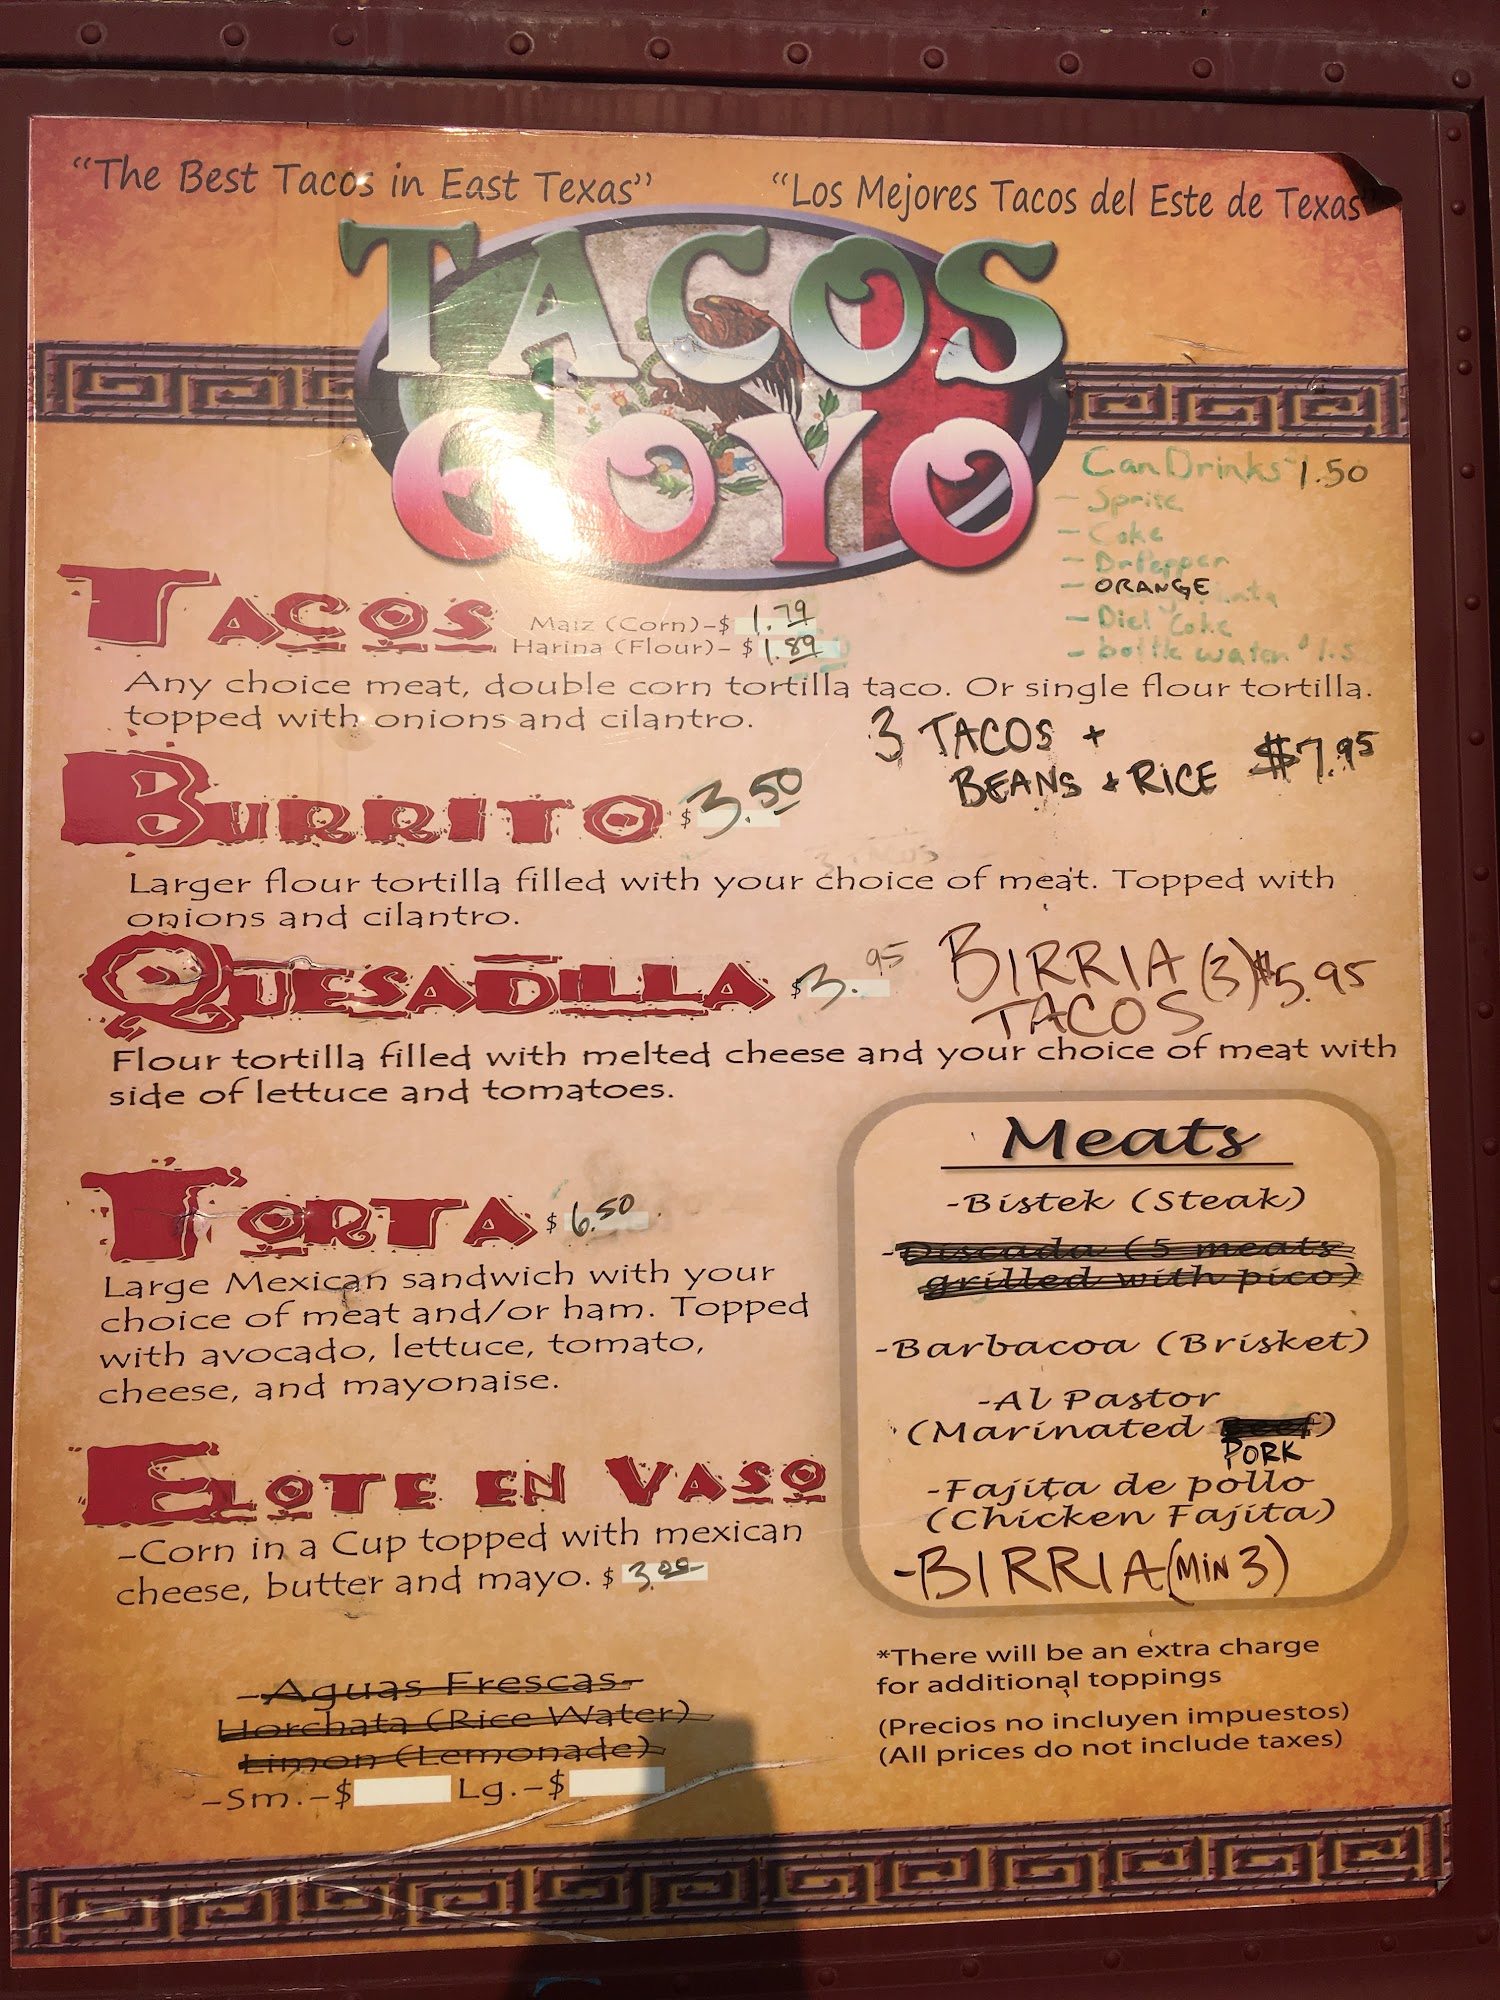 "The Best Tacos in East Texas"
"Los Mejores Tacos del Este de Texas"
TACOS
GOYO
Can Drinks 1.50
- Sprite
- Coke
- Dr Pepper
- ORANGE
- Diet Coke
- bottle water $1.5
TACOS
Maiz (Corn)-$ 1.79
Harina (Flour)- $ 1.89
Any choice meat, double corn tortilla taco. Or single flour tortilla.
topped with onions and cilantro.
3 TACOS +
BEANS + RICE $7.95
BURRITO $3.50
Larger flour tortilla filled with your choice of meat. Topped with
onions and cilantro.
QUESADILLA $3.95
BIRRIA (3) $5.95
TACOS
Flour tortilla filled with melted cheese and your choice of meat with
side of lettuce and tomatoes.
TORTA $6.50
Large Mexican sandwich with your
choice of meat and/or ham. Topped
with avocado, lettuce, tomato,
cheese, and mayonaise.
ELOTE EN VASO
-Corn in a Cup topped with mexican
cheese, butter and mayo. $ 3.00
-Aguas Frescas-
Horchata (Rice Water)
Limon (Lemonade)
-Sm.-$ Lg.-$
Meats
-Bistek (Steak)
-Discada (5 meats
grilled with pico)
-Barbacoa (Brisket)
-Al Pastor
(Marinated Beef)
PORK
-Fajita de pollo
(Chicken Fajita)
-BIRRIA (MIN 3)
*There will be an extra charge
for additional toppings
(Precios no incluyen impuestos)
(All prices do not include taxes)